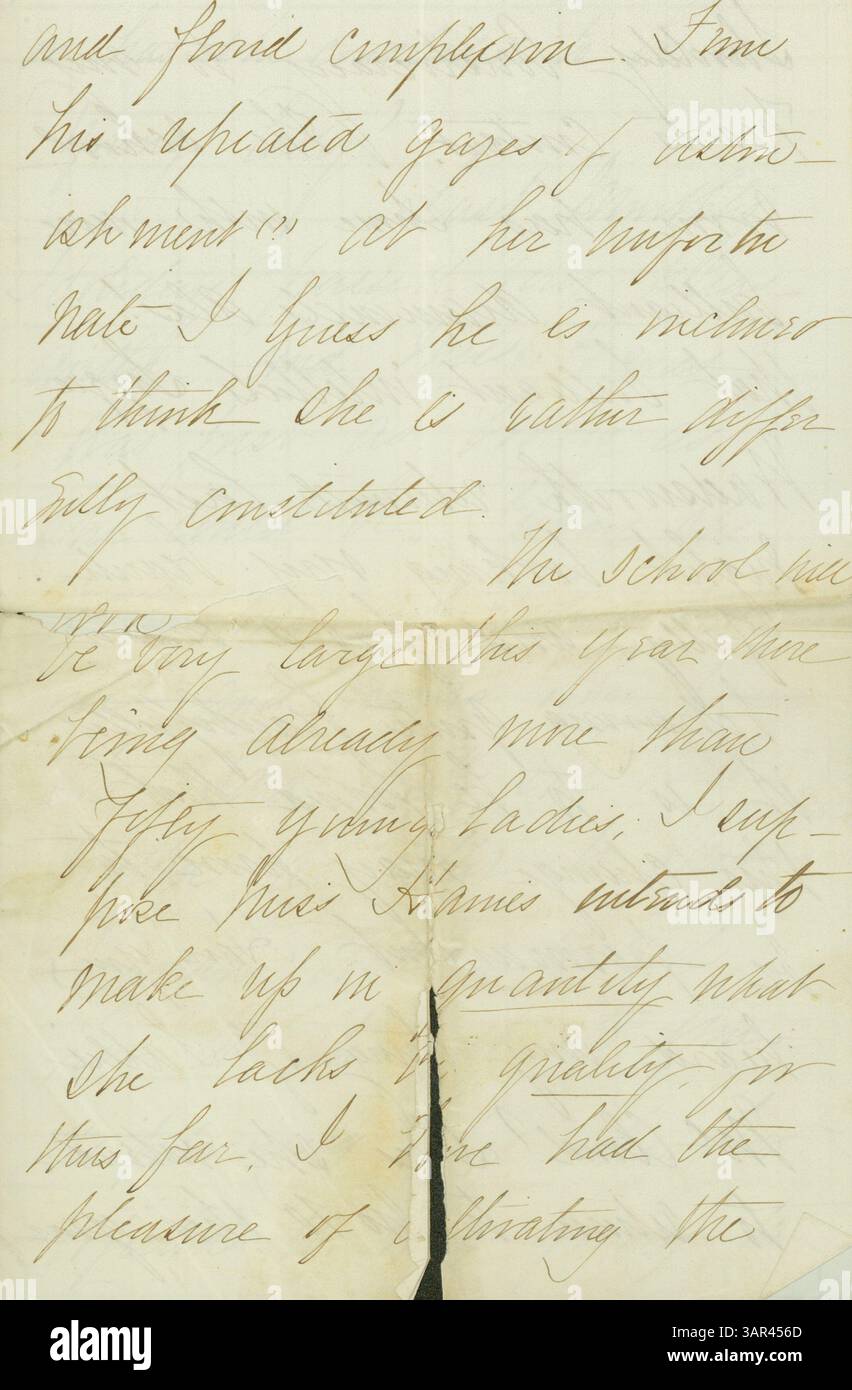 and florid complexion. From
his repeated gazes of aston-
ishment(?) at her unfortu
nate I guess he is inclined
to think she is rather differ
ently constituted.
The school will
be very large this year there
being already more than
fifty young ladies, I sup-
pose Miss Haines intends to
make up in quantity what
she lacks in quality, for
thus far, I have had the
pleasure of cultivating the
alamy
Image ID: 3AR456D
www.alamy.com